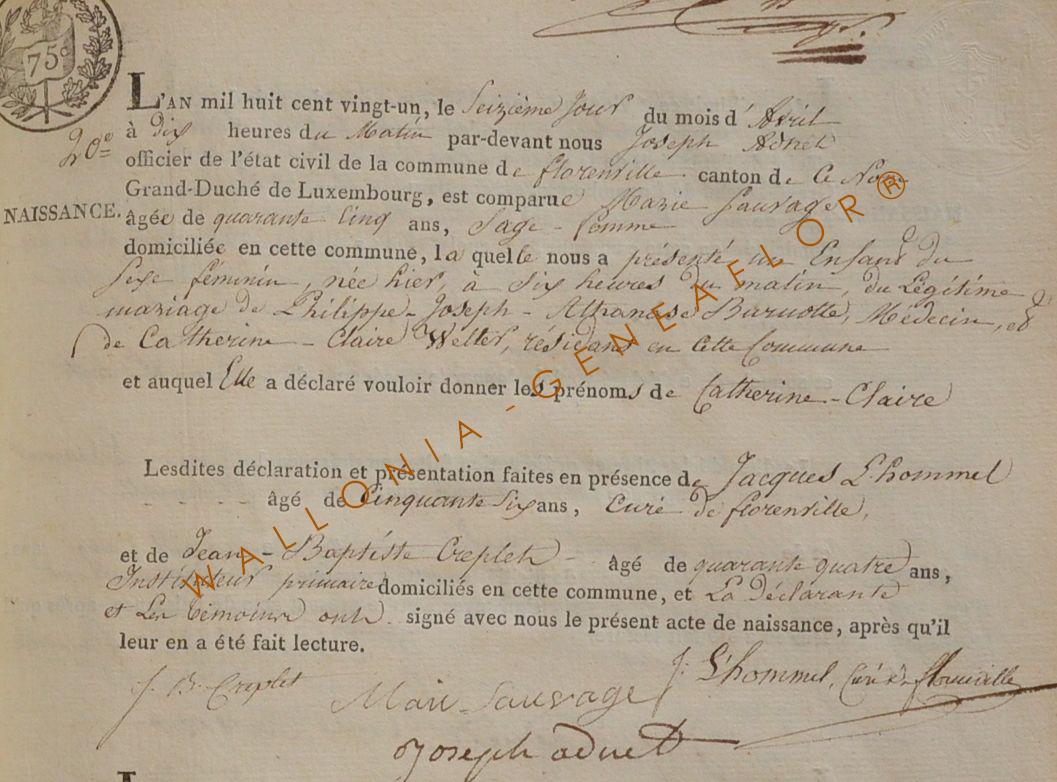 75c
L'AN mil huit cent vingt-un, le Seizième jour du mois d'Avril
20e
à dix heures du Matin par-devant nous Joseph Adnet
officier de l'état civil de la commune de florenville canton de Ce Nom
Grand-Duché de Luxembourg, est comparue Marie Sauvage
NAISSANCE.
âgée de quarante Cinq ans, Sage-femme
domiciliée en cette commune, la quelle nous a présenté un Enfant du
Sexe féminin, née hier, à Six heures du matin, du Légitime
mariage de Philippe-Joseph-Athanase Barnotte, Médecin, et
de Catherine-Claire Welter, résidant en Cette Commune
et auquel Elle a déclaré vouloir donner les prénoms de Catherine-Claire
Lesdites déclaration et présentation faites en présence de Jacques L'hommel
âgé de Cinquante Six ans, Curé de florenville,
et de Jean-Baptiste Creplet âgé de quarante quatre ans,
Instituteur primaire domiciliés en cette commune, et La Déclarante
et Les témoins ont signé avec nous le présent acte de naissance, après qu'il
leur en a été fait lecture.
J. B. Creplet
Mari Sauvage
J. L'hommel, Curé de florenville
joseph adnet
WALLONIA-GENEAFLOR®